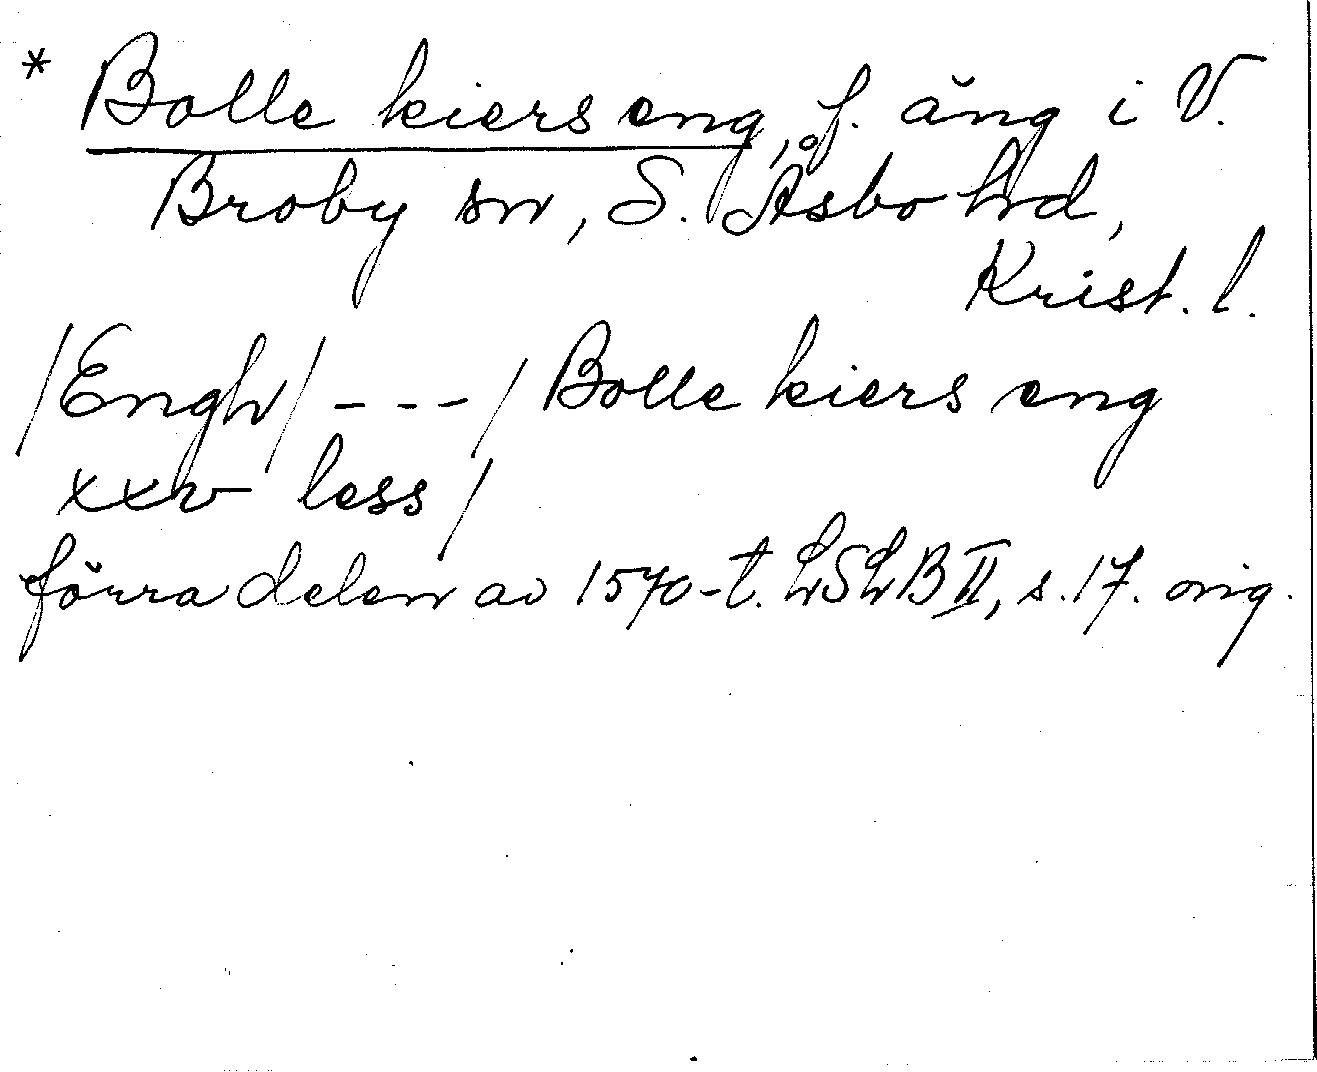 * Bolle kiers eng, f. äng i V.
Broby sn, S. Åsbo hd,
Krist. l.
/Engh/ --- / Bolle kiers eng
xxv less /
förra delen av 1570-t. LSLB II, s. 17. orig.